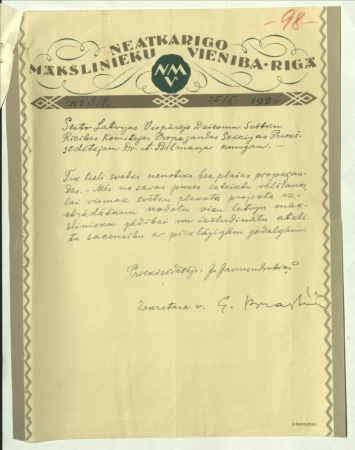 -98-
NEATKARIGO
MĀKSLINIEKU VIENIBA·RIGĀ
NMV
1926
Sesto Latvijas Vispārejo Dziesmu Svētku
Rīcības Komitejas Propagandas Sekcijas Priekš-
sēdētājam Dr. A. Bīlmaņa kungam.—
Tik lieli svētki nenotiks bez plašas propagan-
das.— Mēs no savas puses izteiktu vēlēšanos,
lai vismaz svētku plakatu projektu iz-
strādāšanu nodotu visu latvju māk-
slinieku gādībai un izsludinātu atklā-
tu sacensību ar pieklājīgām godalgām.
Priekšsēdētājs: J.
Sekretara v. E.